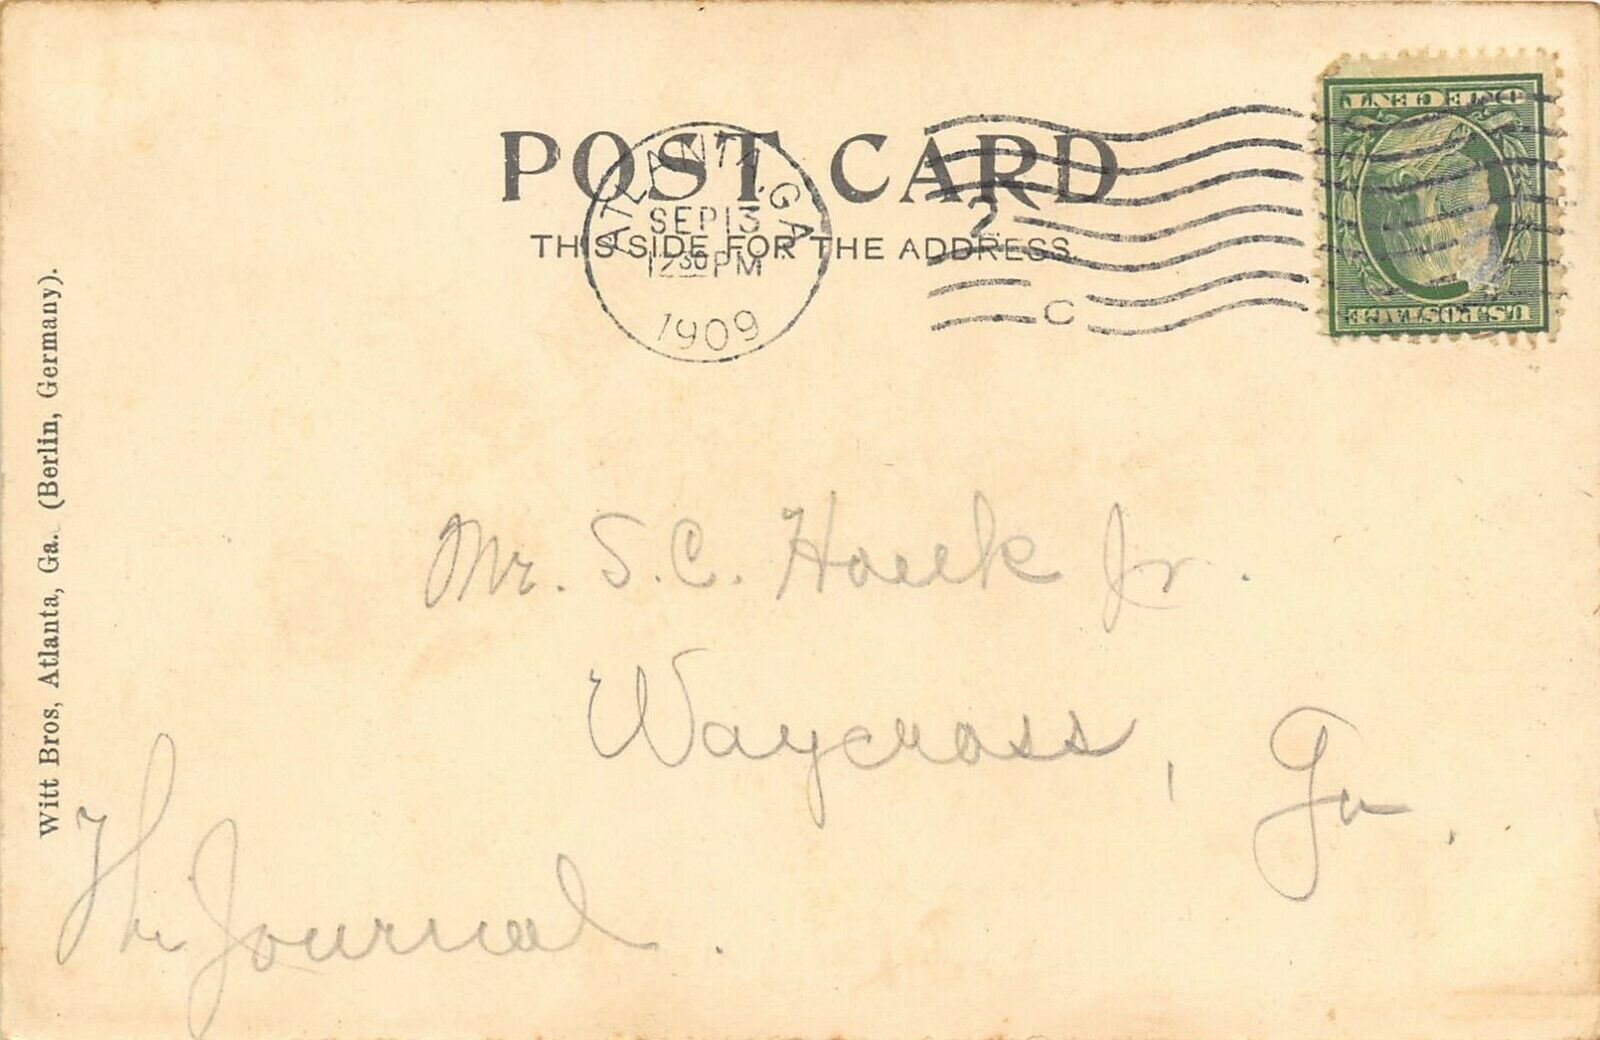 POST CARD
THIS SIDE FOR THE ADDRESS.
ATLANTA, GA.
SEP 13
12 30 PM
1909
2
C
ONE CENT
U.S. POSTAGE
Mr. S. C. Houk Jr.
Waycross, Ga.
The Journal.
Witt Bros, Atlanta, Ga. (Berlin, Germany).